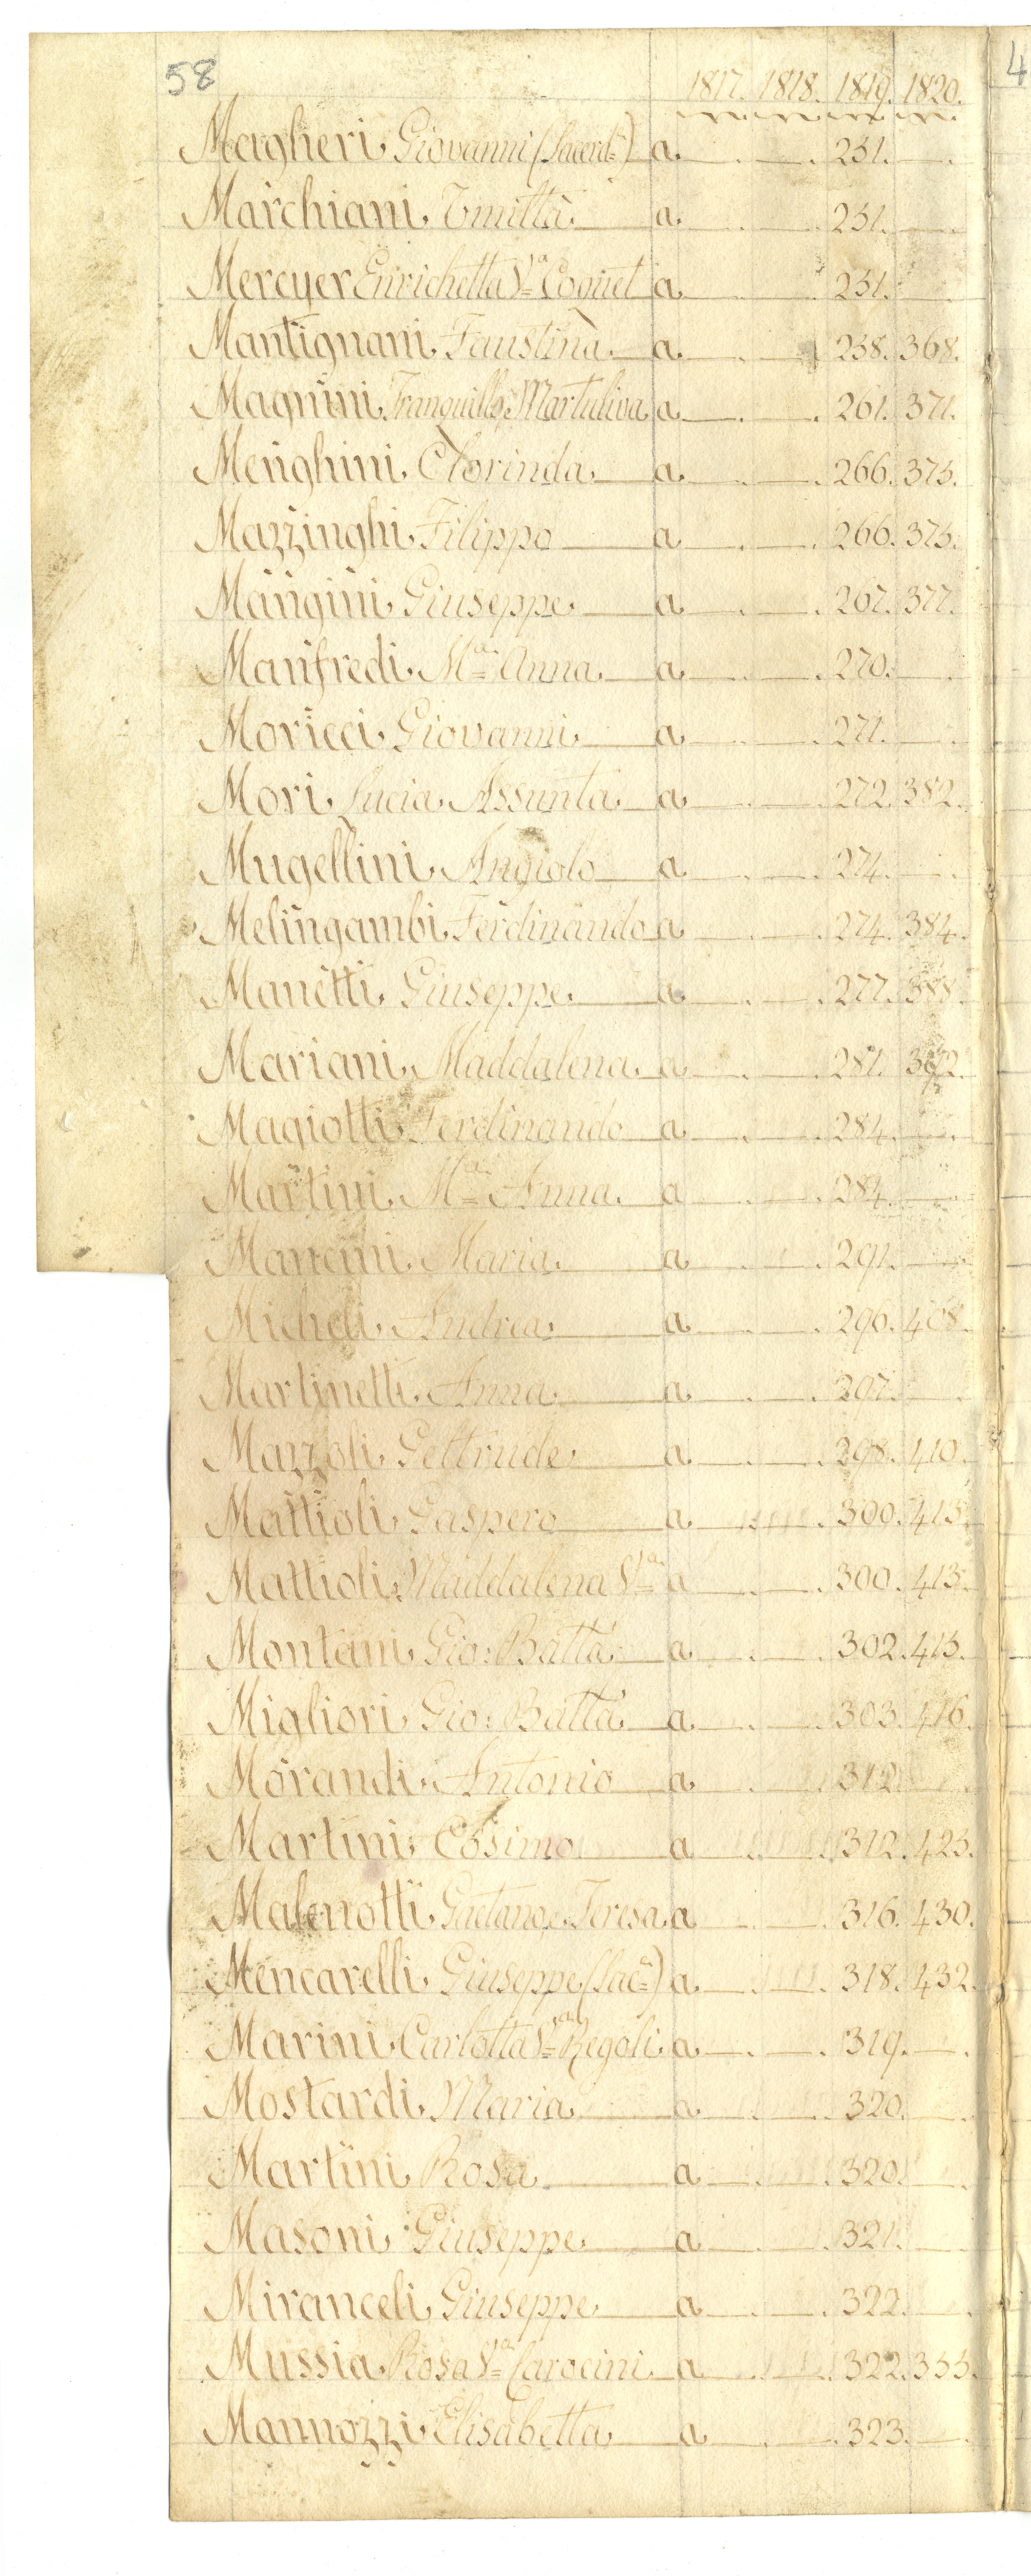 58
1817. 1818. 1819. 1820.
Maglieri Giovanni (Sacerd:) a 251.
Marchiani a 251.
Mercyer Enrichetta Va Coquet a 251.
Mantignani Faustina a 258. 368.
Magnini Tranquillo, Martaliva a 261. 371.
Menghini Clorinda a 266. 375.
Mazzinghi Filippo a 266. 375.
Mangini Giuseppe a 267. 377.
Manfredi Ma Anna a 270.
Moricci Giovanni a 271.
Mori Lucia Assunta a 272. 382.
Mugellini Angiolo a 274.
Melingambi Ferdinando a 274. 384.
Manetti Giuseppe a 277. 388.
Mariani Maddalena a 281.
Magiotti Ferdinando a 284.
Martini Ma Anna a 284.
Mancini Maria a 291.
Micheli Andrea a 296. 408.
Martinetti Anna a 297.
Mazzoli Geltrude a 298. 410.
Mattioli Gaspero a 300. 413.
Mattioli Maddalena Va a 300. 413.
Montani Gio: Batta a 302. 415.
Migliori Gio: Batta a 303. 416.
Morandi Antonio a 312.
Martini Cosimo a 312. 425.
Malenotti Gaetano, e Teresa a 316. 430.
Mencarelli Giuseppe (Sac:) a 318. 432.
Marini Carlotta Va Regoli a 319.
Mostardi Maria a 320.
Martini Rosa a 320.
Masoni Giuseppe a 321.
Miranceli Giuseppe a 322.
Mussia Rosa Va Carocini a 322. 335.
Mannozzi Elisabetta a 323.
4